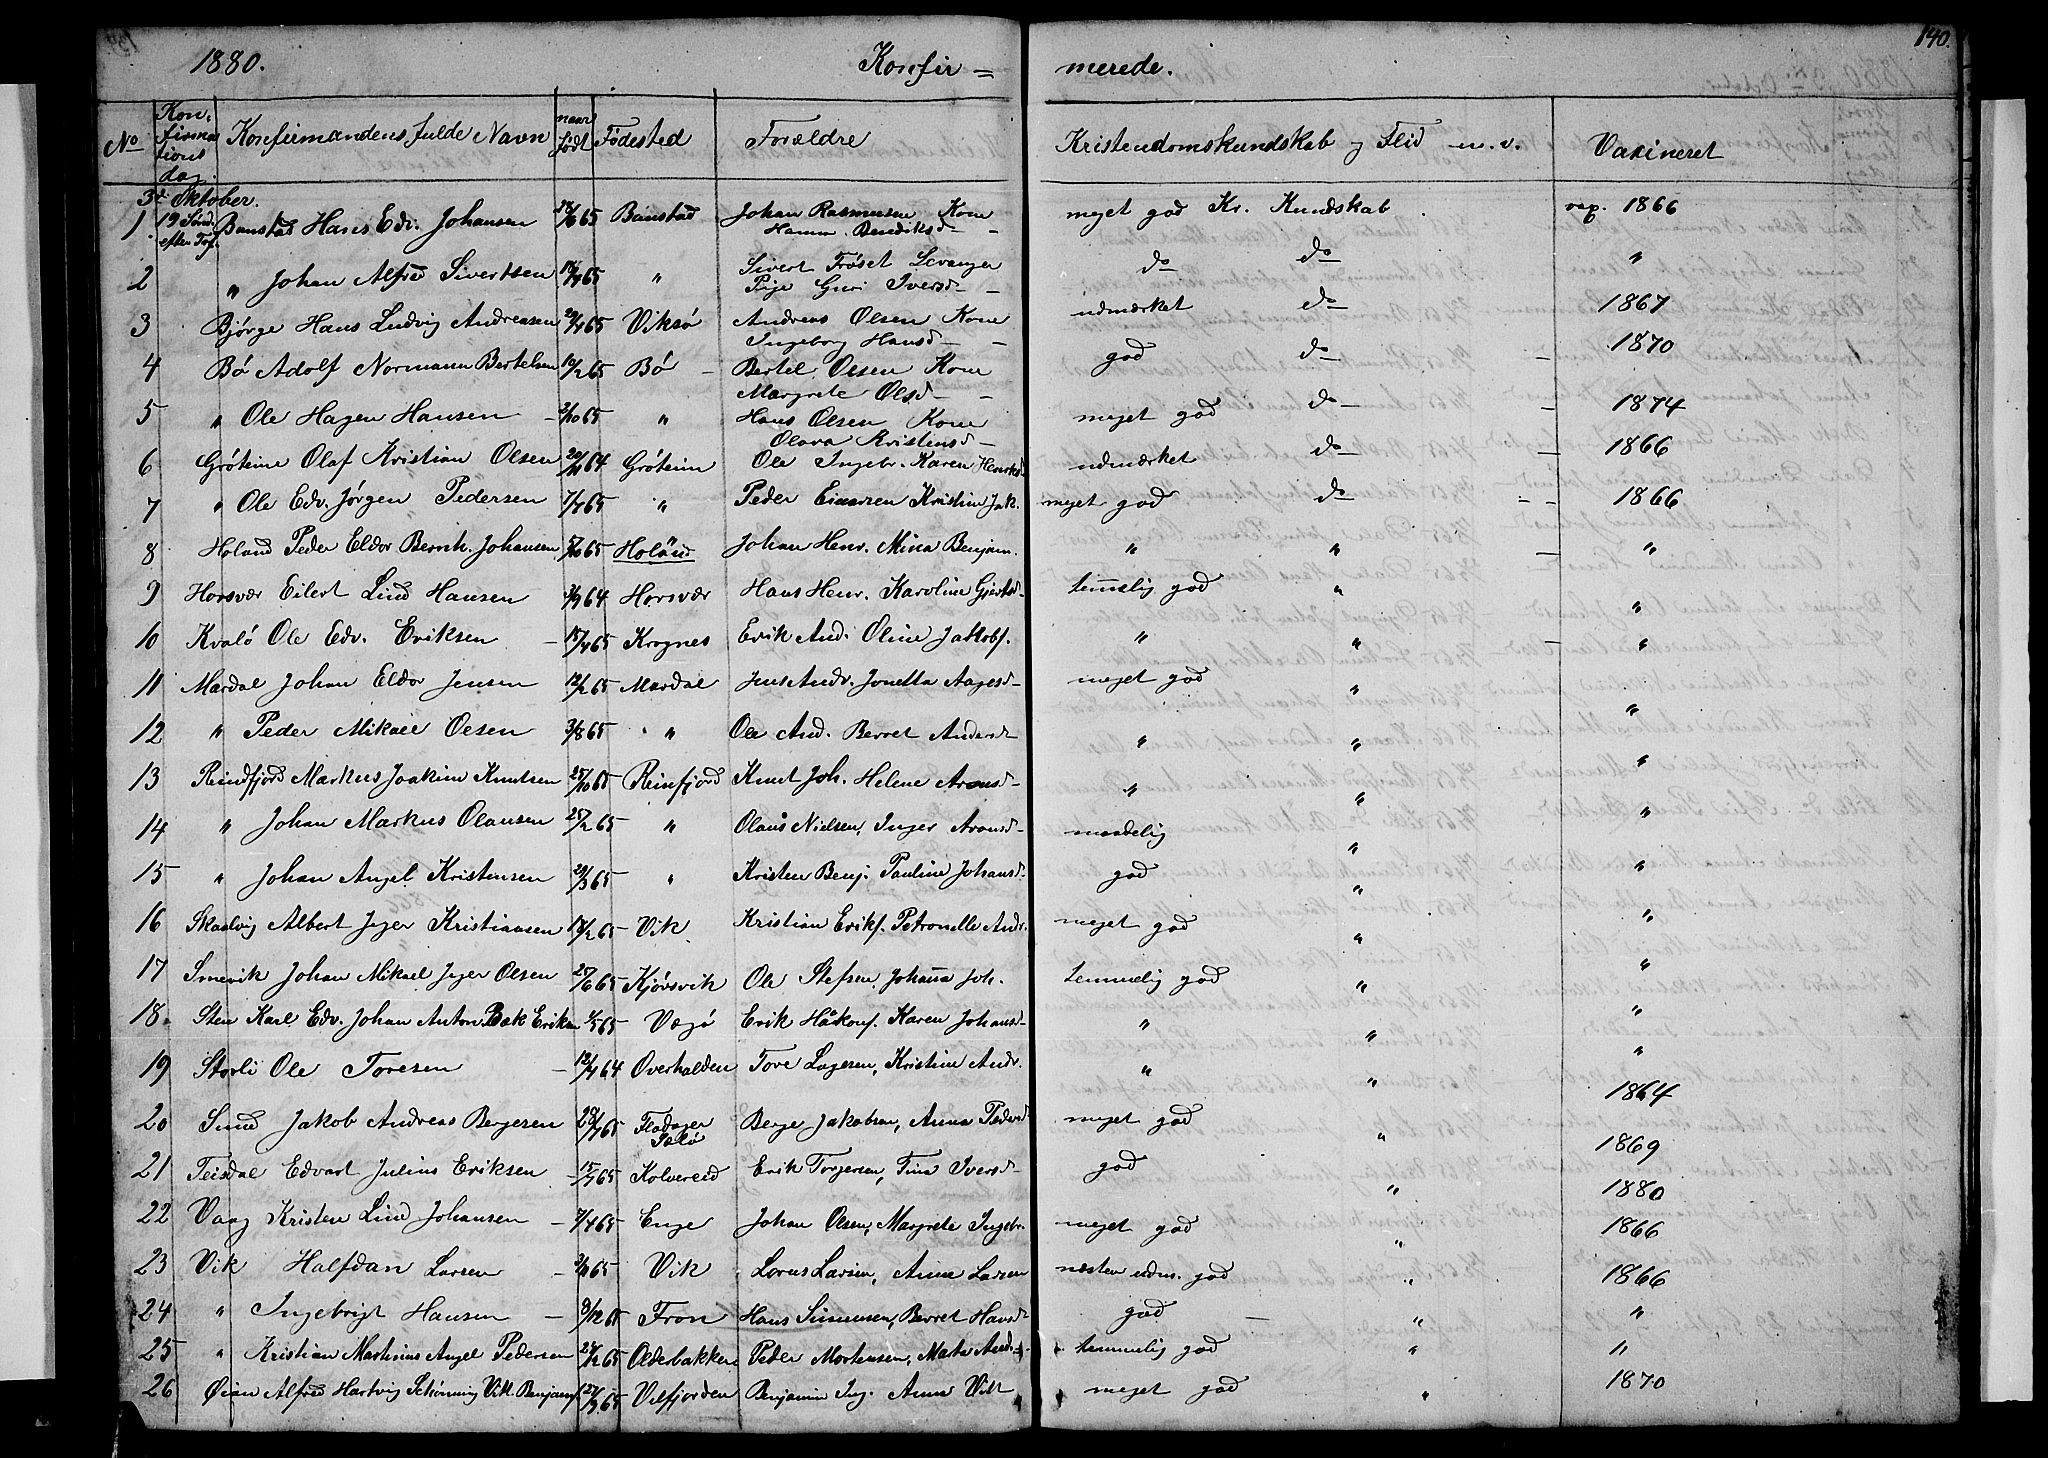 140.
1880. Konfir = merede.
No Konfirmationsdag. Konfirmandens fulde Navn naar födt Födested Forældre Kristendomskundskab og Flid m. v. Vaxineret
3die Oktober.
1 19 Sönd. efter Tref. Banstad Hans Edv. Johansen /6 65 Banstad Johan Rasmussen Kone meget god Kr. Kundskab vax. 1866
Hanna Bendiksd
2 " Johan Alfred Sivertsen 65 " Sivert Fröset Levanger do do "
Pige Guri Iversd
3 Bjørge Hans Ludvig Andreasen 65 Viksö Andreas Olsen Kone udmærket do 1867
Ingeborg Hansd
4 Bö Adolf Normann Bertelsen 10/2 65 Bö Bertel Olsen Kone god do 1870
Margrete Olsd
5 " Ole Hagen Hansen /10 65 " Hans Olsen Kone meget god do 1874
Olava Kristensd
6 Gröteim Olaf Kristian Olsen 64 Gröteim Ole Ingebr. Karen Henriksd udmærket do 1866
7 " Ole Edv. Jørgen Pedersen 65 " Peder Einarsen Kristine Jak. meget god do 1866
8 Holand Peder Eldor Bernh. Johansen 65 Holand Johan Henr. Mina Benjam. " " "
9 Horsvær Eilert Lind Hansen 64 Horsvær Hans Henr. Karoline Gjertsd temmelig god " "
10 Kvalö Ole Edv. Eriksen 15/4 65 Krognes Erik And. Oline Jakobs. " " "
11 Mardal Johan Eldor Jensen 12/2 65 Mardal Jens Andr. Jonetta Aagesd meget god " "
12 " Peder Mikael Olsen 3/8 65 " Ole And. Berret Andersd " " "
13 Reindfjord Markus Joakim Knutsen 25/10 65 Reinfjord Knut Joh. Helene Aronsd " " "
14 " Johan Markus Olausen 25/2 65 " Olaus Nielsen, Inger Aronsd maadelig " "
15 " Johan Angel Kristensen 29/3 65 " Kristen Benj. Pauline Johansd god " "
16 Skaalvig Albert Jeger Kristiansen 17/2 65 Vik Kristian Eriks. Petronelle Andr. meget god " "
17 Smevik Johan Mikael Jeger Olsen 25/6 65 Kjörsvik Ole Stefsen, Johanna Joh. temmelig god " "
18 Sten Karl Edv. Johan Anton Bæk Eriksen /5 65 Vegö Erik Håkons. Karen Johansd " " "
19 Storli Ole Toresen 12/4 64 Overhalden Tore Lagesen, Kristine Andr. " " 1864
20 Sund Jakob Andreas Bergesen 28/7 65 Fladager Berge Jakobsen, Anna Pedersd meget god " 1869
21 Teisdal Edvart Julius Eriksen 15/7 65 Kolvereid Erik Torgersen, Tina Iversd god " 1880
22 Vaag Kristen Lind Johansen 7/4 65 Enge Johan Olsen, Margrete Ingebr. meget god " 1866
23 Vik Halfdan Larsen 65 Vik Lorns Larsen, Anna Larsen næsten udm. god " 1866
24 " Ingebrigt Hansen 8/12 65 Fron Hans Simonsen, Berret Hansd god " "
25 " Kristian Martinus Angel Pedersen 65 Olderbakken Peder Mortensen, Marta And. temmelig god " "
26 Øian Alfred Hartvig Schönning Vitt. Benjamins. 65 Velfjorden Benjamin Ing. Anna Vitt meget god " 1870